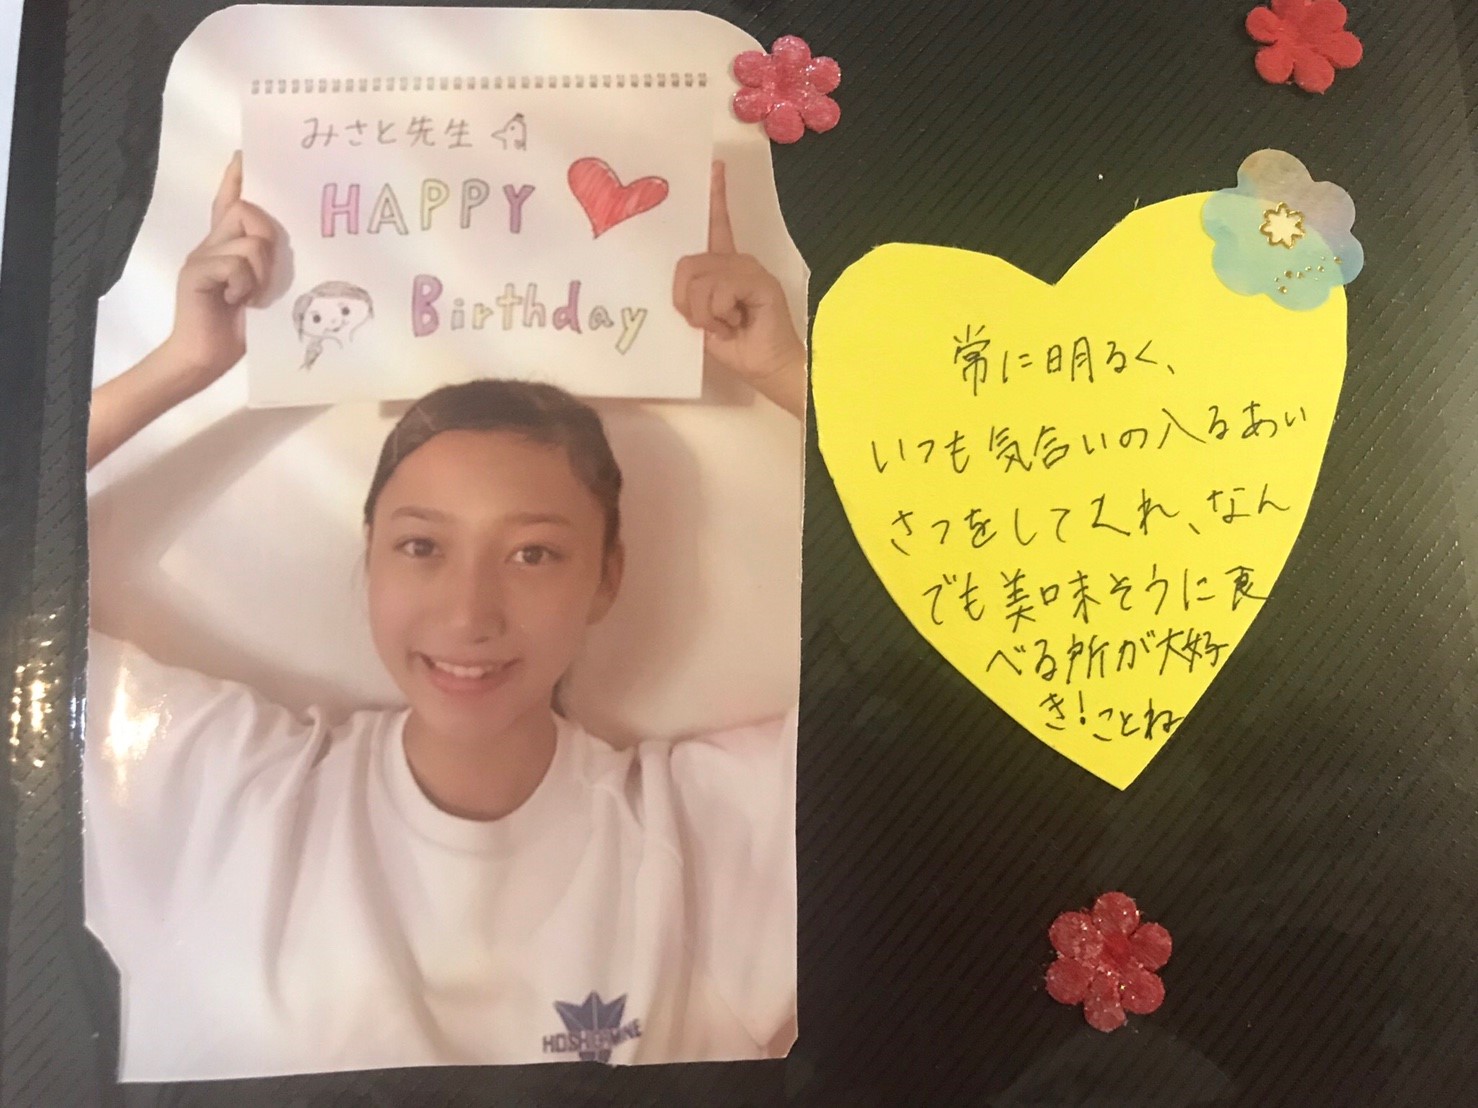 みさと先生
HAPPY
Birthday
常に明るく、
いつも気合いの入るあい
さつをしてくれ、なん
でも美味そうに食
べる所が大好
き!ことね